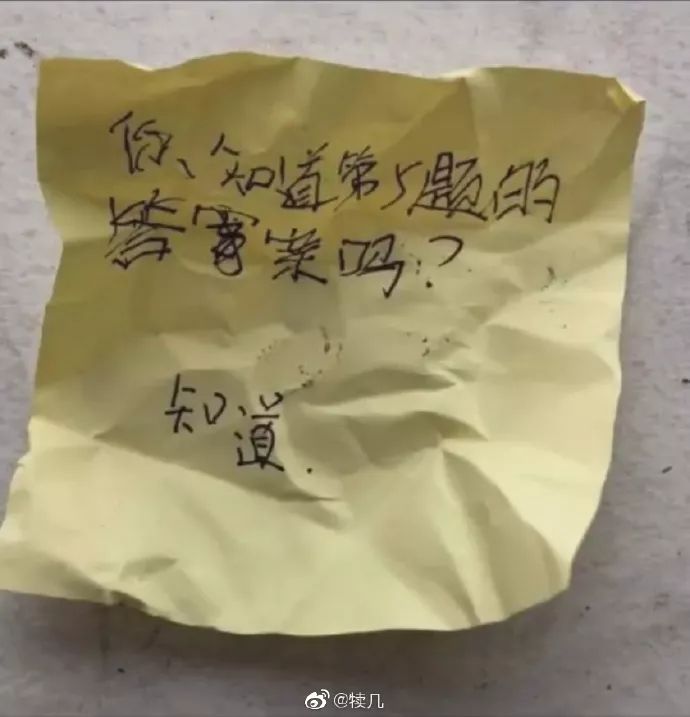 你、知道第5题的
答案案吗?
知
道.
@犊几